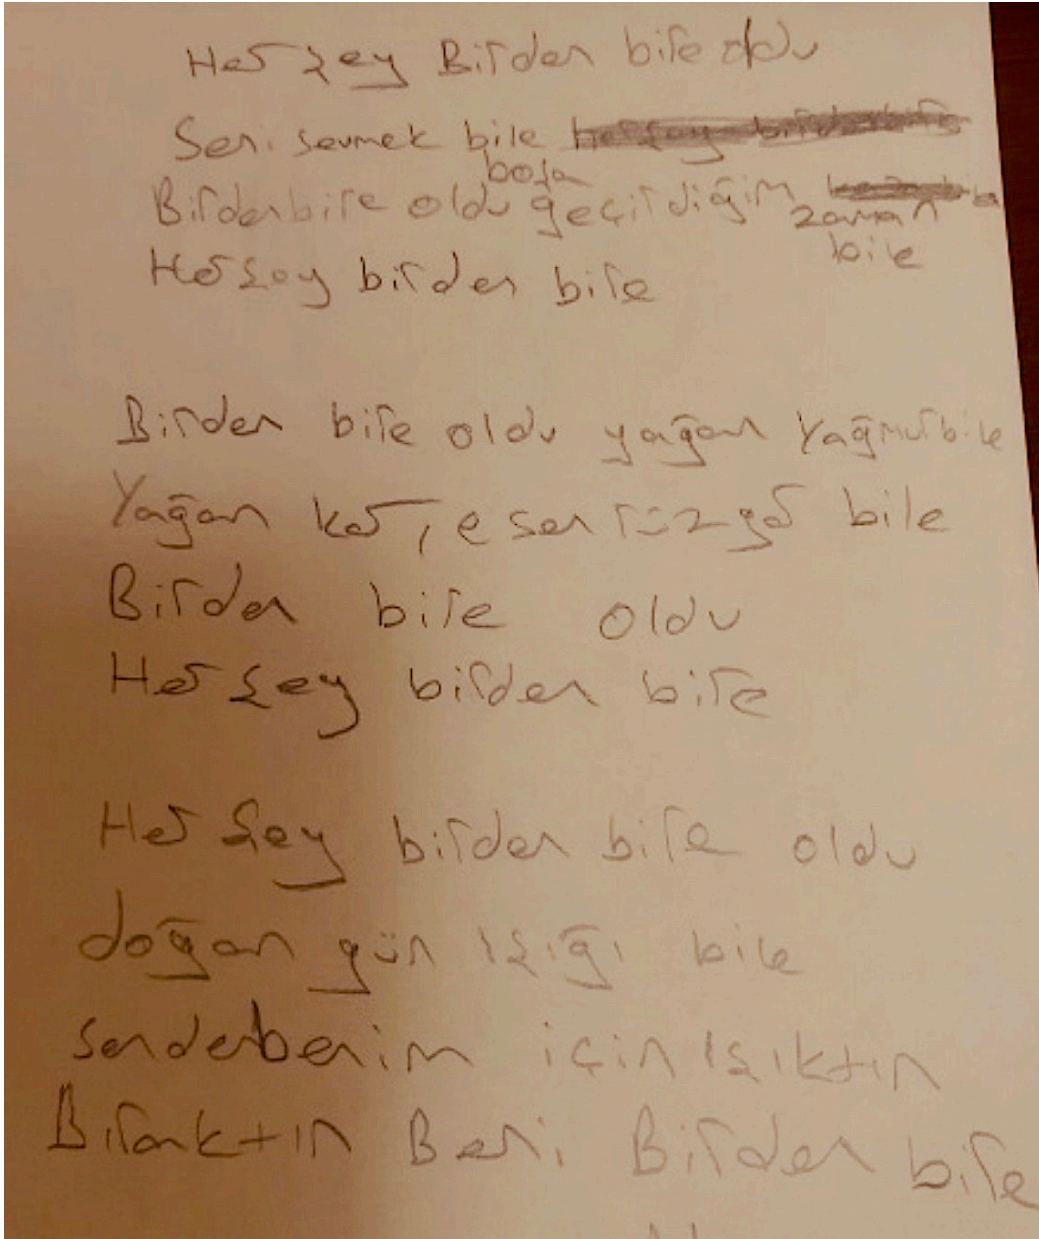 Her şey Birden bire oldu
Seni sevmek bile
Birdenbire oldu boşa geçirdiğim zaman bile
Herşey birden bire
Birden bire oldu yağan Yağmur bile
Yağan kar, esen rüzgar bile
Birden bire oldu
Her şey birden bire
Her şey birden bire oldu
doğan gün ışığı bile
sende benim için ışıktın
Bıraktın Beni Birden bire